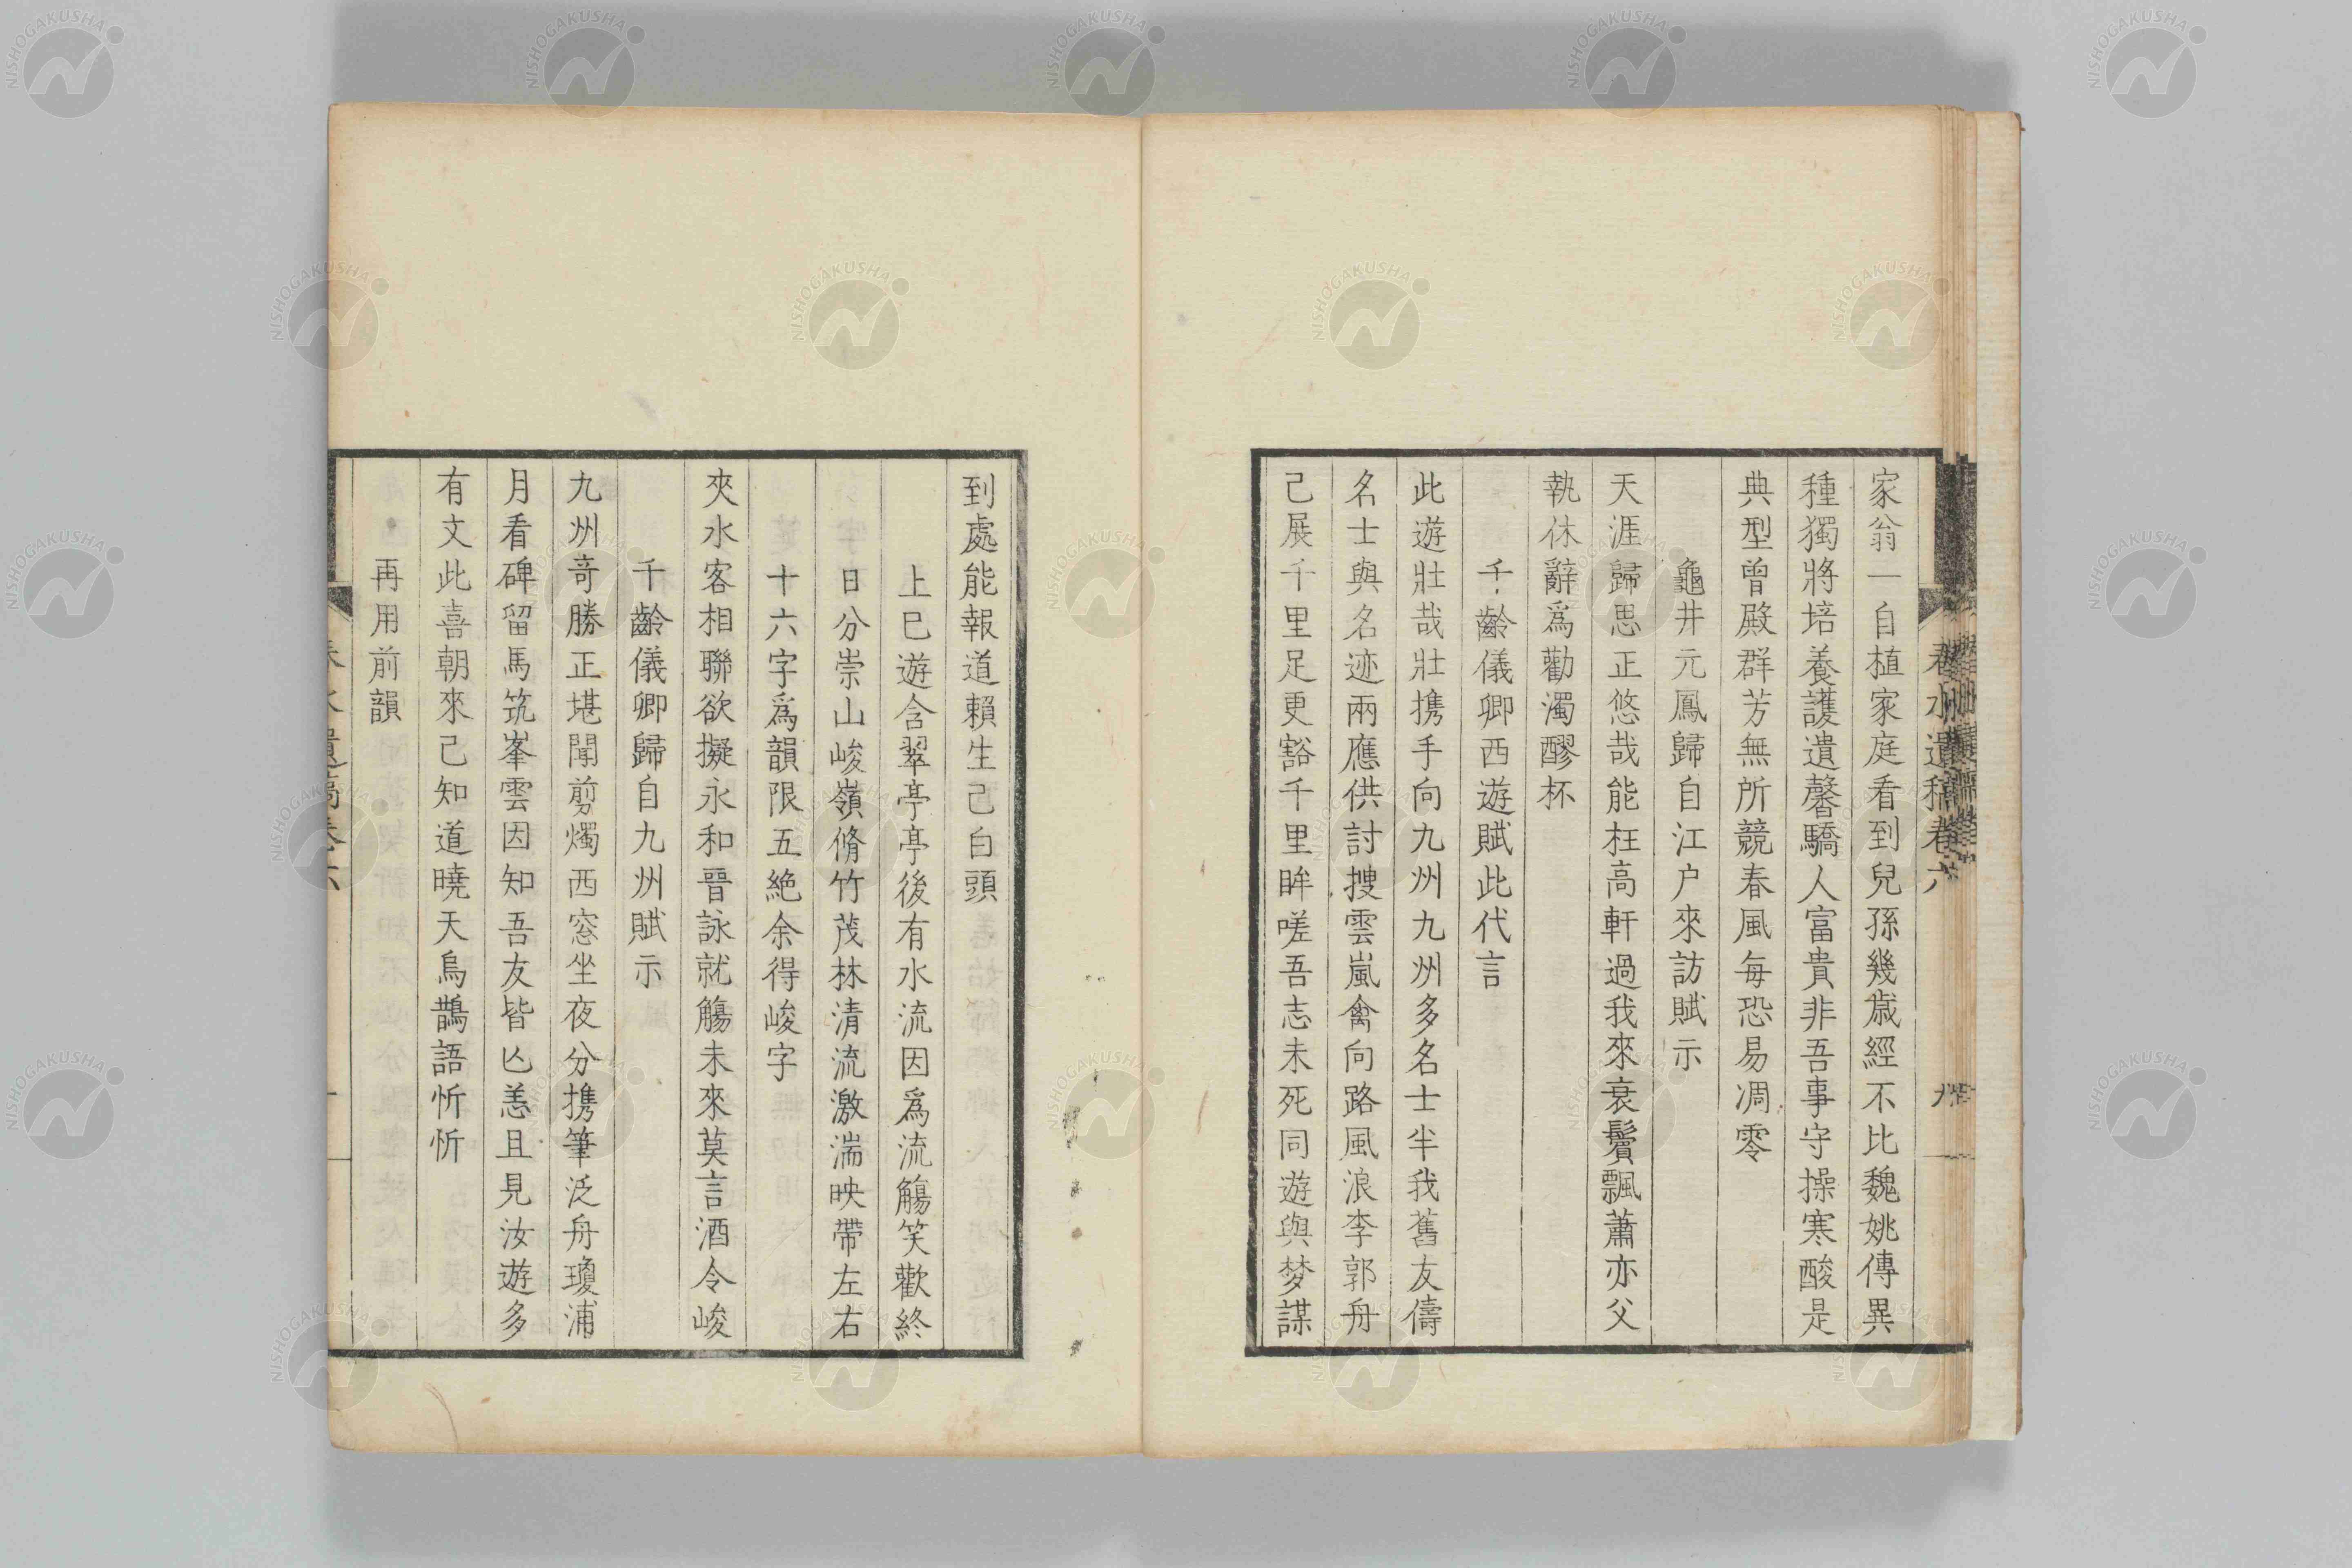 春水遺稿卷六
九
家翁一自植家庭看到兒孫幾歲經不比魏姚傳異
種獨將培養護遺馨驕人富貴非吾事守操寒酸是
典型曾殿群芳無所競春風每恐易凋零
龜井元鳳歸自江户來訪賦示
天涯歸思正悠哉能枉高軒過我來衰鬢飄蕭亦父
執休辭爲勸濁醪杯
千齡儀卿西遊賦此代言
此遊壯哉壯携手向九州九州多名士半我舊友儔
名士與名迹兩應供討搜雲嵐禽向路風浪李郭舟
己展千里足更豁千里眸嗟吾志未死同遊與梦謀
到處能報道賴生己白頭
上巳遊含翠亭亭後有水流因爲流觴笑歡終
日分崇山峻嶺脩竹茂林清流激湍映帶左右
十六字爲韻限五絶余得峻字
夾水客相聯欲擬永和晉詠就觴未來莫言酒令峻
千齡儀卿歸自九州賦示
九州竒勝正堪聞剪燭西窓坐夜分携筆泛舟瓊浦
月看碑留馬筑峯雲因知吾友皆亾恙且見汝遊多
有文此喜朝來己知道曉天烏鵲語忻忻
再用前韻
春水遺稿卷六
NISHOGAKUSHA